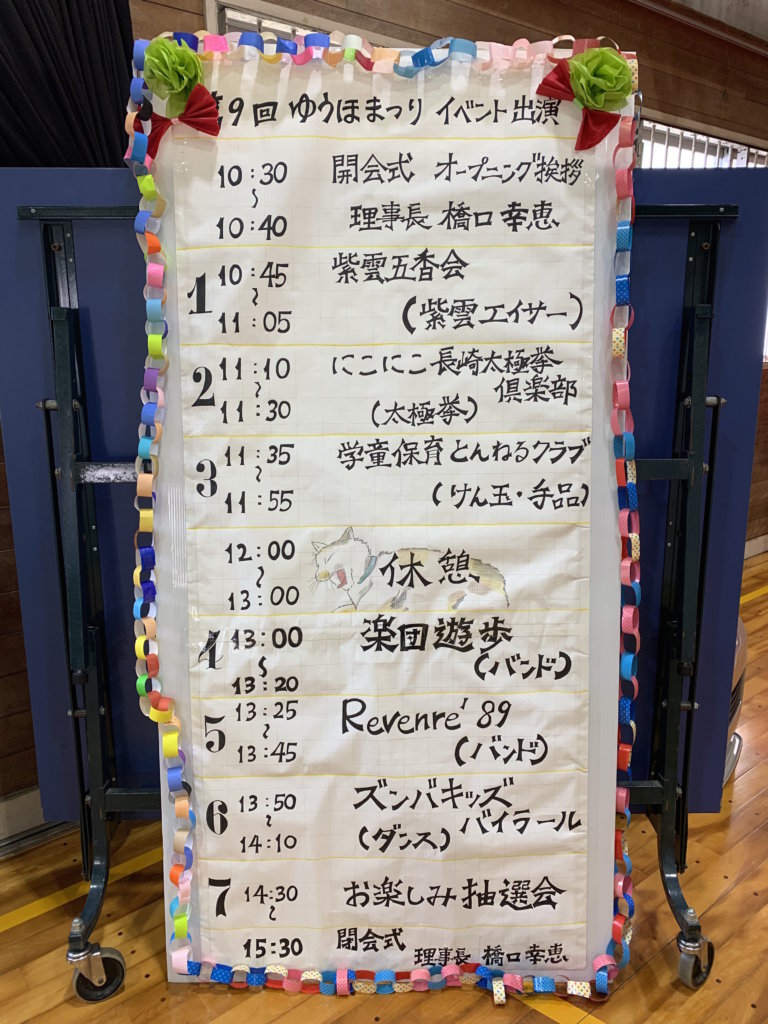 9回 ゆうほまつり イベント出演
10:30 開会式 オープニング挨拶
〜
10:40 理事長 橋口幸恵
1 10:45 紫雲五香会
〜
11:05 (紫雲エイサー)
2 11:10 にこにこ長崎太極拳
〜 倶楽部
11:30 (太極拳)
3 11:35 学童保育とんねるクラブ
〜
11:55 (けん玉・手品)
12:00
〜 休憩
13:00
4 13:00 楽団遊歩
〜 (バンド)
13:20
5 13:25 Revenre' 89
〜
13:45 (バンド)
6 13:50 ズンバキッズ
〜 バイラール
14:10 (ダンス)
7 14:30 お楽しみ抽選会
〜
15:30 閉会式 理事長 橋口幸恵